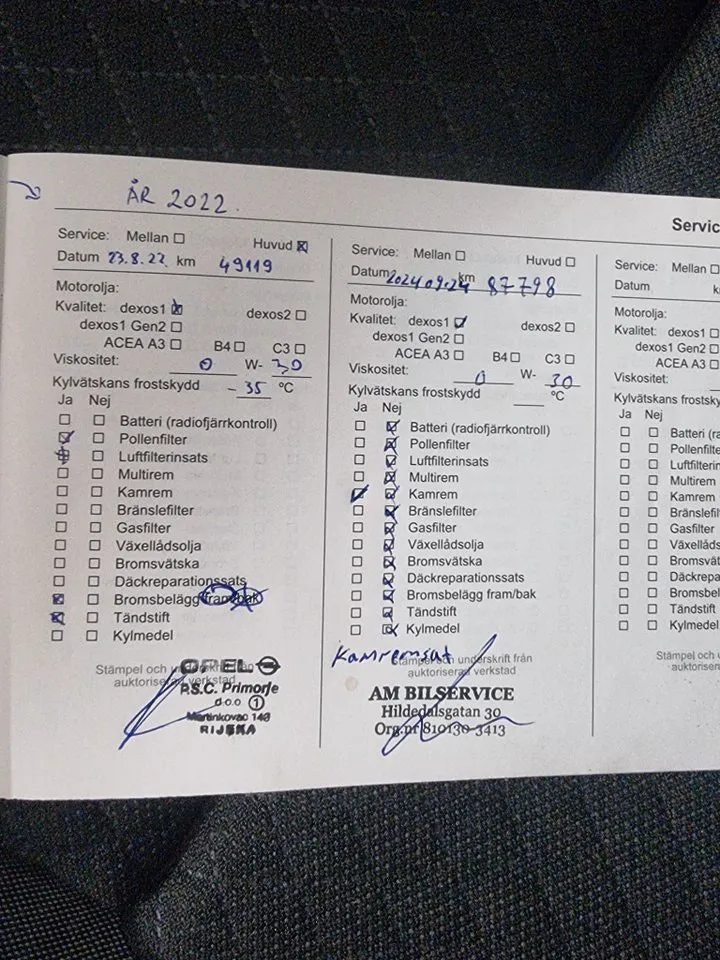 ÅR 2022.
Service: Mellan Huvud
Datum 23.8.22. km 49119
Motorolja:
Kvalitet: dexos1 dexos2
dexos1 Gen2
ACEA A3 B4 C3
Viskositet: 0 W- 30
Kylvätskans frostskydd - 35 °C
Ja Nej
Batteri (radiofjärrkontroll)
Pollenfilter
Luftfilterinsats
Multirem
Kamrem
Bränslefilter
Gasfilter
Växellådsolja
Bromsvätska
Däckreparationssats
Bromsbelägg fram/bak
Tändstift
Kylmedel
Stämpel och underskrift från
auktoriserad verkstad
OPEL
P.S.C. Primorje
d.o.o 1
Martinkovac 140
RIJEKA
Service: Mellan Huvud
Datum 2024 09.24 km 87798
Motorolja:
Kvalitet: dexos1 dexos2
dexos1 Gen2
ACEA A3 B4 C3
Viskositet: 0 W- 30
Kylvätskans frostskydd °C
Ja Nej
Batteri (radiofjärrkontroll)
Pollenfilter
Luftfilterinsats
Multirem
Kamrem
Bränslefilter
Gasfilter
Växellådsolja
Bromsvätska
Däckreparationssats
Bromsbelägg fram/bak
Tändstift
Kylmedel
Kamremsat
Stämpel och underskrift från
auktoriserad verkstad
AM BILSERVICE
Hildedalsgatan 30
Org.nr 810130-3413
Servic
Service: Mellan
Datum k
Motorolja:
Kvalitet: dexos1
dexos1 Gen2
ACEA A3
Viskositet:
Kylvätskans frostsky
Ja Nej
Batteri (ra
Pollenfilte
Luftfilterin
Multirem
Kamrem
Bränslefil
Gasfilter
Växellåds
Bromsvät
Däckrepa
Bromsbel
Tändstift
Kylmedel
Stämpel och u
auktoriser